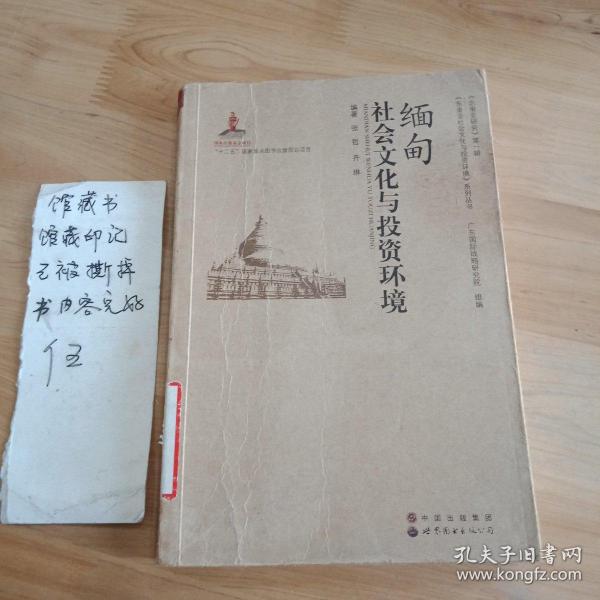 馆藏书
馆藏印记
已被撕掉
书内容完好
伍
《东南亚研究》第一辑
《东南亚社会文化与投资环境》系列丛书
广东国际战略研究院 组编
缅甸
社会文化与投资环境
MIANDIAN SHEHUI WENHUA YU TOUZI HUANJING
编著 张哲 齐琳
国家出版基金项目
“十二五”国家重点图书出版规划项目
中国出版集团
世界图书出版公司
孔夫子旧书网
www.kongfz.com